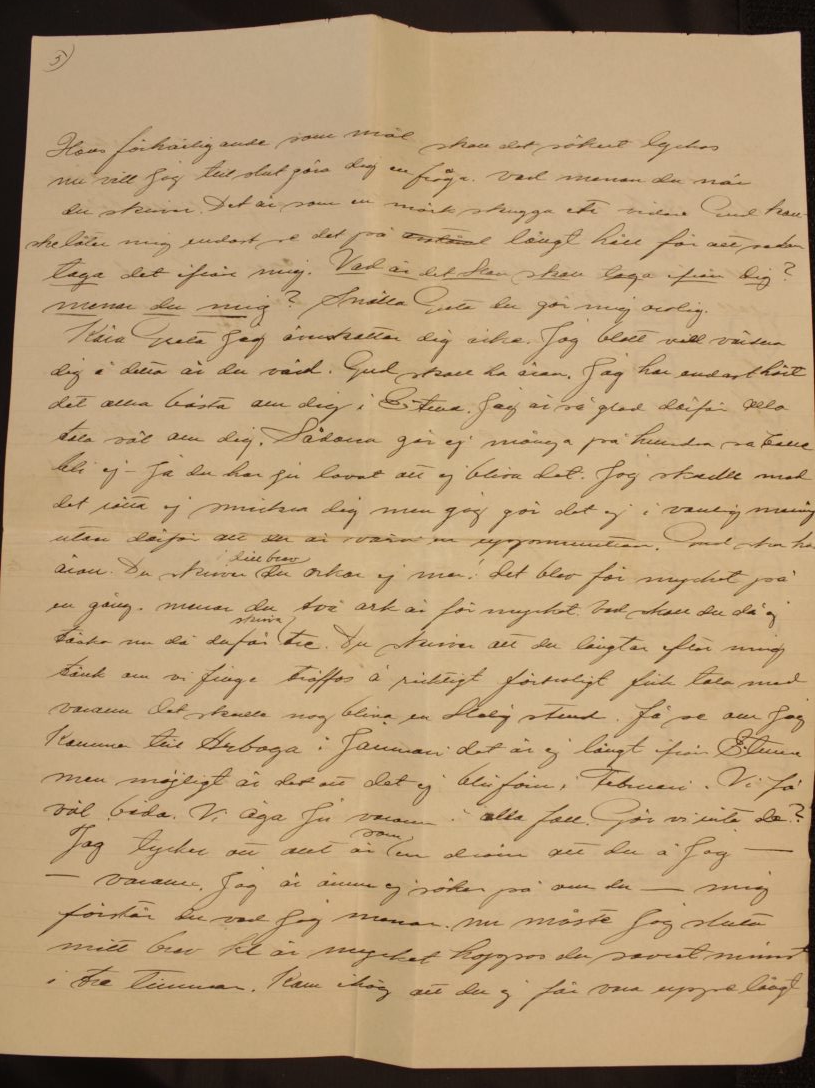 5)
Hans förhärligande som mål skall det säkert lyckas
nu vill jag till slut göra dig en fråga. vad menar du när
du skriver. Det är som en mörk skugga etc vidare Gud kan-
ske låter mig endast se det på långt håll för att sedan
taga det ifrån mig. Vad är det Han skall taga ifrån dig?
menar du mig? Snälla Greta du gör mig orolig.
Kära Greta jag överskattar dig icke. Jag blott vill värdera
dig i detta är du värd. Gud skall ha äran. Jag har endast hört
det allra bästa om dig i Etuna. Jag är så glad därför alla
tala väl om dig. Sådana gör ej många på hundra så
bli ej – Ja du har ju lovat att ej bliva det. Jag skulle med
det sätta ej smickra dig men jag gör det ej i vanlig mening
utan därför att du är värd en uppmuntran. Gud ska ha
äran. Du skriver i ditt brev du orkar ej mer! det blev för mycket på
en gång. menar du två ark är för mycket. Vad skall du då ej
tänka nu då du får skriva tre. Du skriver att du längtar efter mig
tänk om vi finge träffas å riktigt förtroligt fint tala med
varann Det skulle nog bliva en Helig stund. Få se om jag
kommer till Arboga i Januari det är ej långt ifrån Etuna
men möjligt är det att det ej blir förr i Februari. Vi få
väl bida. Vi äga ju varann i alla fall. Gör vi inte de?
Jag tycker att allt är som en dröm att du å jag —
— varann. Jag är ännu ej säker på om du — mig
förstår du vad jag menar. nu måste jag sluta
mitt brev kl är mycket hoppas du sovit minst
i tre timmar. Kom ihåg att du ej får vara uppe långt